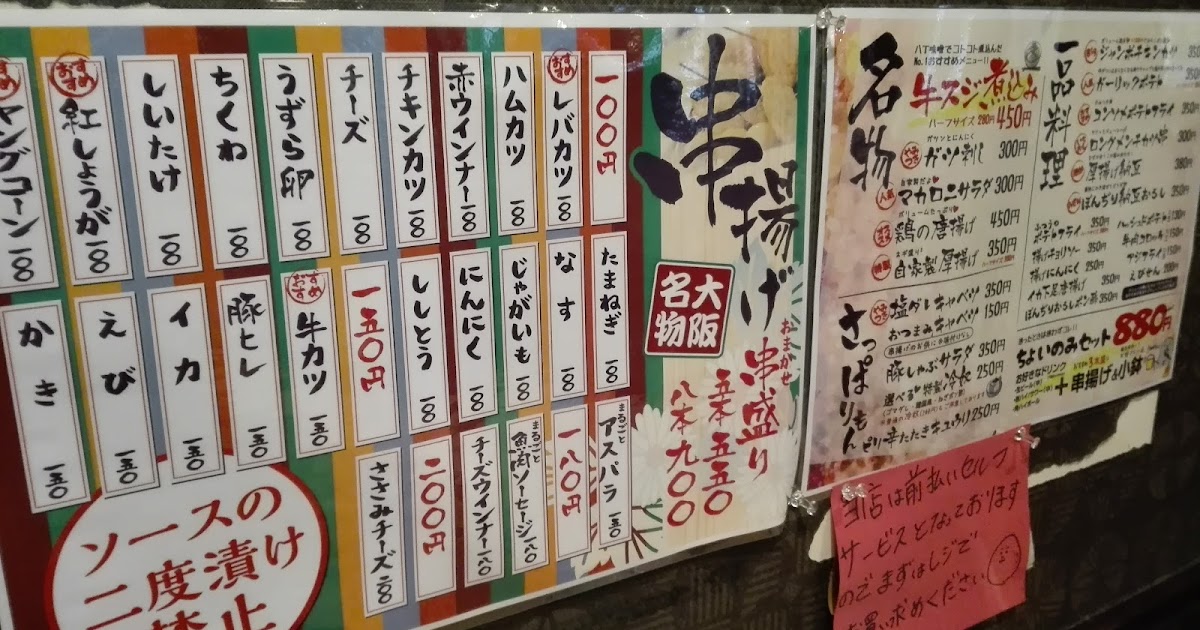 串揚げ
大阪名物
おまかせ
串盛り
五本 五五〇
八本 九〇〇
一〇〇円
おすすめ
レバカツ 一〇〇
ハムカツ 一〇〇
赤ウインナー 一〇〇
チキンカツ 一〇〇
チーズ 一〇〇
うずら卵 一〇〇
ちくわ 一〇〇
しいたけ 一〇〇
おすすめ
紅しょうが 一〇〇
すすめ
ヤングコーン 一〇〇
たまねぎ 一〇〇
なす 一〇〇
じゃがいも 一〇〇
にんにく 一〇〇
ししとう 一〇〇
一五〇円
おすすめ
牛カツ 一五〇
豚ヒレ 一五〇
イカ 一五〇
えび 一五〇
かき 一五〇
まるごと
アスパラ 一五〇
一八〇円
まるごと
魚肉ソーセージ 一八〇
チーズウインナー 一八〇
二〇〇円
ささみチーズ 二〇〇
ソースの
二度漬け
禁止
名物
八丁味噌でコトコト煮込んだ
No.1おすすめメニュー!!
牛スジ煮込み
ハーフサイズ 280円 450円
ガツンとにんにく
ガツ刺し 300円
人気
マカロニサラダ 300円
ボリュームたっぷり
鶏の唐揚げ 450円
自家製厚揚げ 350円
さっぱりもん
塩ダレキャベツ 350円
おつまみキャベツ 150円
豚しゃぶサラダ 350円
選べる特製冷奴 250円
ピリ辛たたきキュウリ 250円
一品料理
ガーリックポテト
コンソメポテトフライ 350円
ロングメンチカツ 300円
厚揚げ納豆 380円
ぼんぢり納豆おろし 350円
ポテトフライ 350円
揚げギョウザー 350円
揚げにんにく 250円
イカ下足唐揚げ 350円
ぼんぢりおろしポン酢 350円
アジフライ
えびせん 100円
まよったときは悩わずコレ!!
ちょいのみセット 880円
お好きなドリンク
+串揚げ&小鉢
当店は前払いセルフ
サービスとなっております
のでまずはレジで
お買い求めください